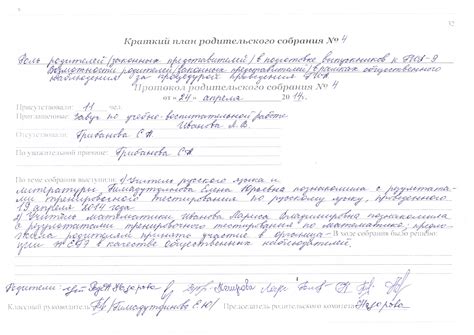 Краткий план родительского собрания № 4
Роль родителей /законных представителей/ в подготовке выпускников к ГИА-9
Возможности родителей /законных представителей/ в рамках общественного
наблюдения за процедурой проведения ГИА
Протокол родительского собрания № 4
от «24» апреля 2014г.
Присутствовали: 11 чел.
Приглашенные: Завуч по учебно-воспитательной работе
Иванова Л.В.
Отсутствовали: Грибанова С.А
По уважительной причине: Грибанова С.А
По теме собрания выступили: 1) Учитель русского языка и
литературы Елена Юрьевна познакомила с результата-
ми тренировочного тестирования по русскому языку, проведенного
19 апреля 2014 года
2) Учитель математики, Иванова Лариса Владимировна познакомила
с результатами тренировочного тестирования по математике; предло-
жила родителям принять участие в организа-
В ходе собрания было решено:
ции в качестве общественных наблюдателей.
Родители:
Классный руководитель
Председатель родительского комитета Назарова